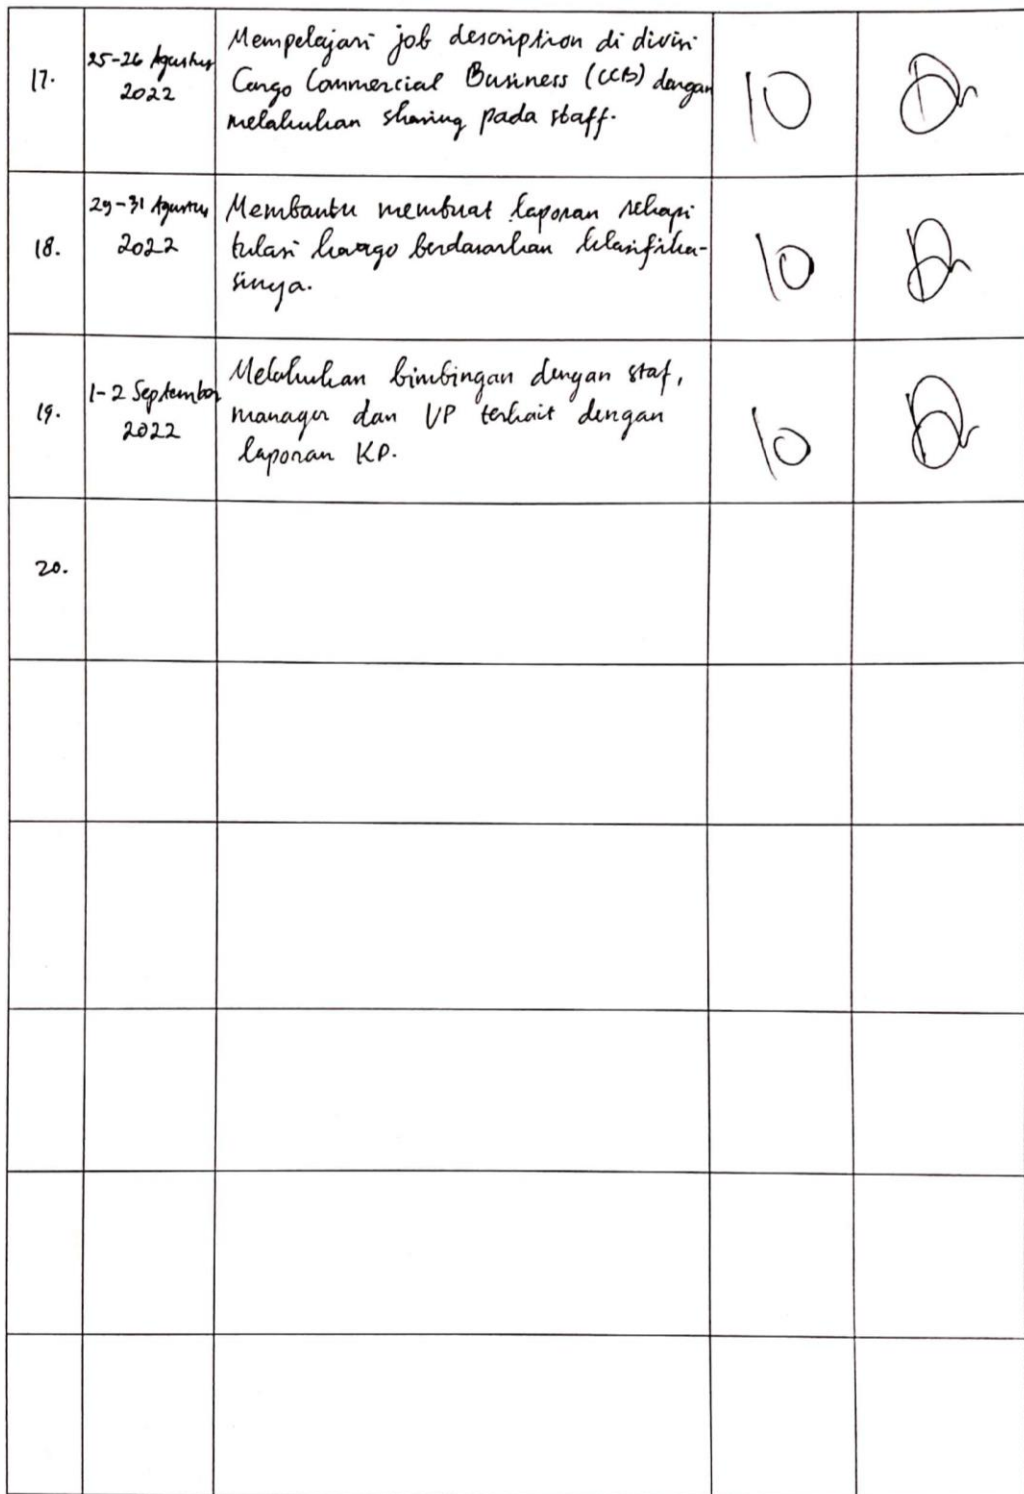 17.
25-26 Agustus
2022
Mempelajari job description di divisi
Cargo Commercial Business (CCB) dengan
melakukan sharing pada staff.
10
18.
29-31 Agustus
2022
Membantu membuat laporan rekapi
tulasi kargo berdasarkan klasifika-
sinya.
10
19.
1-2 September
2022
Melakukan bimbingan dengan staf,
manager dan VP terkait dengan
laporan KP.
10
20.